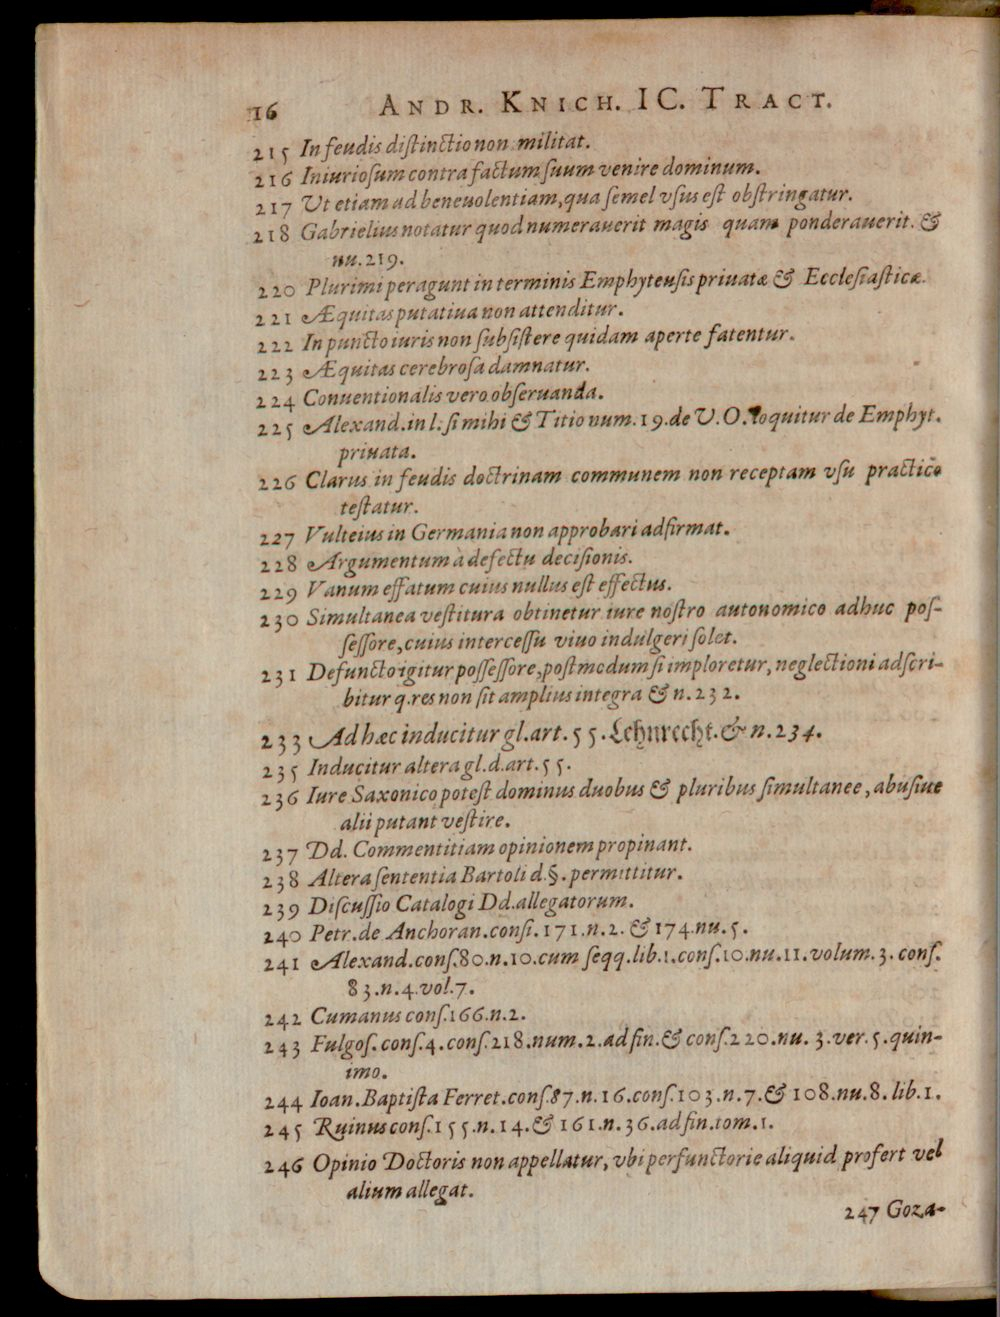 16 ANDR. KNICH. IC. TRACT.
215 In feudis distinctio non militat.
216 Iniuriosum contra factum suum venire dominum.
217 Vt etiam ad beneuolentiam, qua semel vsus est obstringatur.
218 Gabrielius notatur quod numerauerit magis quam ponderauerit. &
nu. 219.
220 Plurimi peragunt in terminis Emphyteusis priuatæ & Ecclesiasticæ.
221 Æquitas putatiua non attenditur.
222 In puncto iuris non subsistere quidam aperte fatentur.
223 Æquitas cerebrosa damnatur.
224 Conuentionalis vero obseruanda.
225 Alexand. in l. si mihi & Titio num. 19. de V. O. loquitur de Emphyt.
priuata.
226 Clarus in feudis doctrinam communem non receptam vsu practico
testatur.
227 Vulteius in Germania non approbari adfirmat.
228 Argumentum à defectu decisionis.
229 Vanum effatum cuius nullus est effectus.
230 Simultanea vestitura obtinetur iure nostro autonomico adhuc pos-
sessore, cuius intercessu viuo indulgeri solet.
231 Defuncto igitur possessore, postmodum si imploretur, neglectioni adscri-
bitur q. res non sit amplius integra & n. 232.
233 Ad hæc inducitur gl. art. 55. Lehnrecht. & n. 234.
235 Inducitur altera gl. d. art. 55.
236 Iure Saxonico potest dominus duobus & pluribus simultanee, abusiue
alii putant vestire.
237 Dd. Commentitiam opinionem propinant.
238 Altera sententia Bartoli d. §. permittitur.
239 Discussio Catalogi Dd. allegatorum.
240 Petr. de Anchoran. consi. 171. n. 2. & 174. nu. 5.
241 Alexand. cons. 80. n. 10. cum seqq. lib. 1. cons. 10. nu. 11. volum. 3. cons.
83. n. 4. vol. 7.
242 Cumanus cons. 166. n. 2.
243 Fulgos. cons. 4. cons. 218. num. 2. ad fin. & cons. 220. nu. 3. ver. 5. quin-
imo.
244 Ioan. Baptista Ferret. cons. 87. n. 16. cons. 103. n. 7. & 108. nu. 8. lib. 1.
245 Ruinus cons. 155. n. 14. & 161. n. 36. ad fin. tom. 1.
246 Opinio Doctoris non appellatur, vbi perfunctorie aliquid profert vel
alium allegat.
247 Goza-